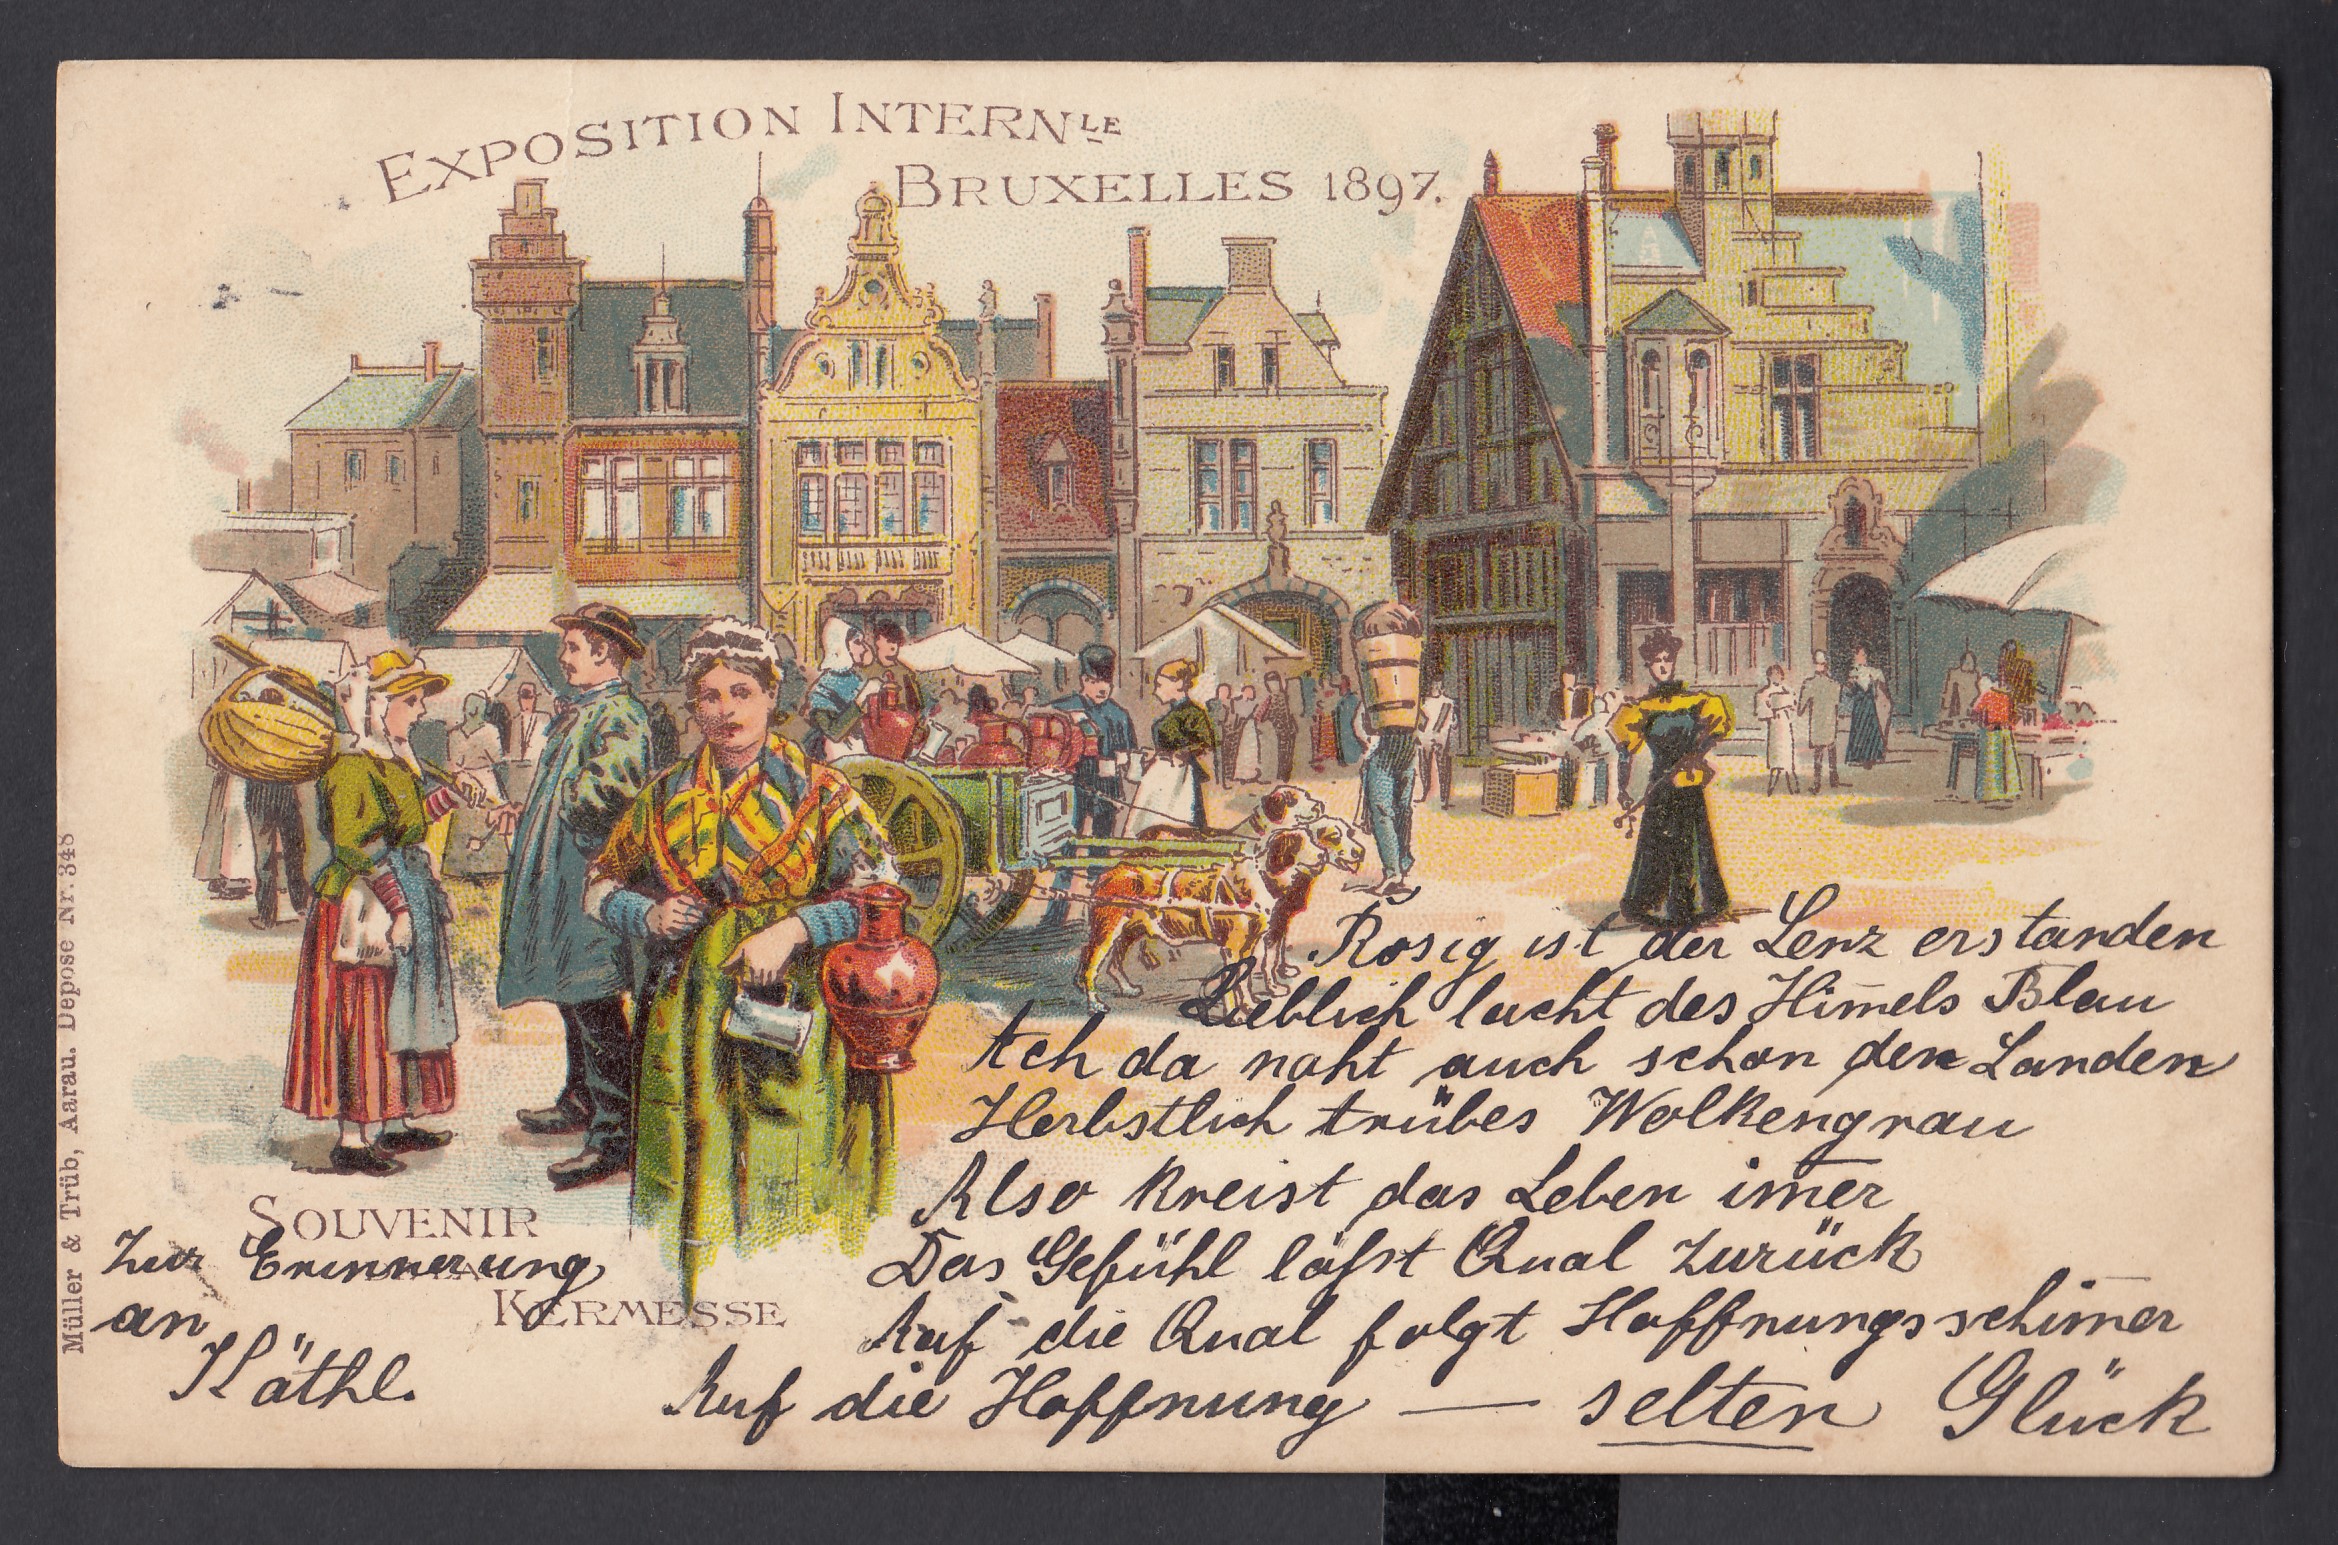 EXPOSITION INTERNLE
BRUXELLES 1897.
Rosig ist der Lenz erstanden
Lieblich lacht des Him̅els Blau
Ach da naht auch schon den Landen
Herbstlich trübes Wolkengrau
Also kreist das Leben im̅er
Das Gefühl läßt Qual zurück
Auf die Qual folgt Hoffnungsschim̅er
Auf die Hoffnung — selten Glück
SOUVENIR
KERMESSE
Zur Erinnerung
an
Käthl.
Müller & Trüb, Aarau. Depose Nr. 348